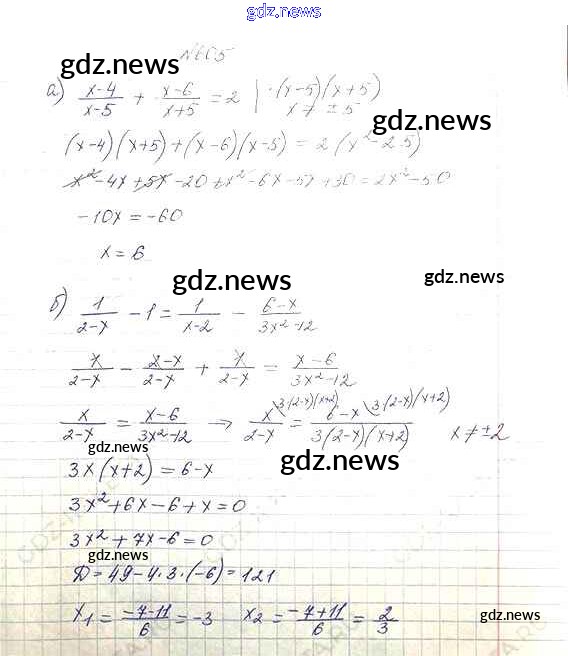 gdz.news
№605
gdz.news
а) (x-4)/(x-5) + (x-6)/(x+5) = 2 | ·(x-5)(x+5)
x ≠ ±5
gdz.news
(x-4)(x+5)+(x-6)(x-5) = 2(x²-25)
x²-4x+5x-20+x²-6x-5x+30=2x²-50
-10x=-60
x=6
gdz.news
gdz.news
б) 1/(2-x) -1= 1/(x-2) - (6-x)/(3x²-12)
1/(2-x) - (2-x)/(2-x) + 1/(2-x) = (x-6)/(3x²-12)
x/(2-x) = (x-6)/(3x²-12) → x/(2-x) \3(2-x)(x+2) = (6-x)/(3(2-x)(x+2)) \3(2-x)(x+2) x≠±2
gdz.news
gdz.news
3x(x+2)=6-x
3x²+6x-6+x=0
3x²+7x-6=0
gdz.news
Д=49-4·3·(-6)=121
x₁= (-7-11)/6 =-3 x₂= (-7+11)/6 = 2/3
gdz.news